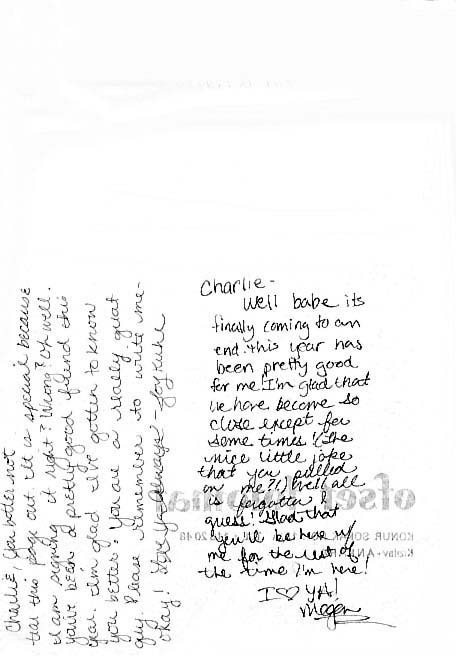 Charlie, You better not
tear this page out. It is special because
I am signing it right? Wrong? Oh well.
You've been a pretty good friend this
year. I'm glad I've gotten to know
you better. You are a really great
guy. Please remember to write me-
okay! Love Ya Always -
Charlie -
Well babe its
finally coming to an
end. This year has
been pretty good
for me. I'm glad that
we have become so
close except for
some times! (the
nice little joke
that you pulled
on me?!) Well all
is forgotten I
guess! Glad that
you'll be here w/
me for the rest of
the time I'm here!
I ♡ YA!
Megan
ofset
KONUR SOK
Kızılay - AN